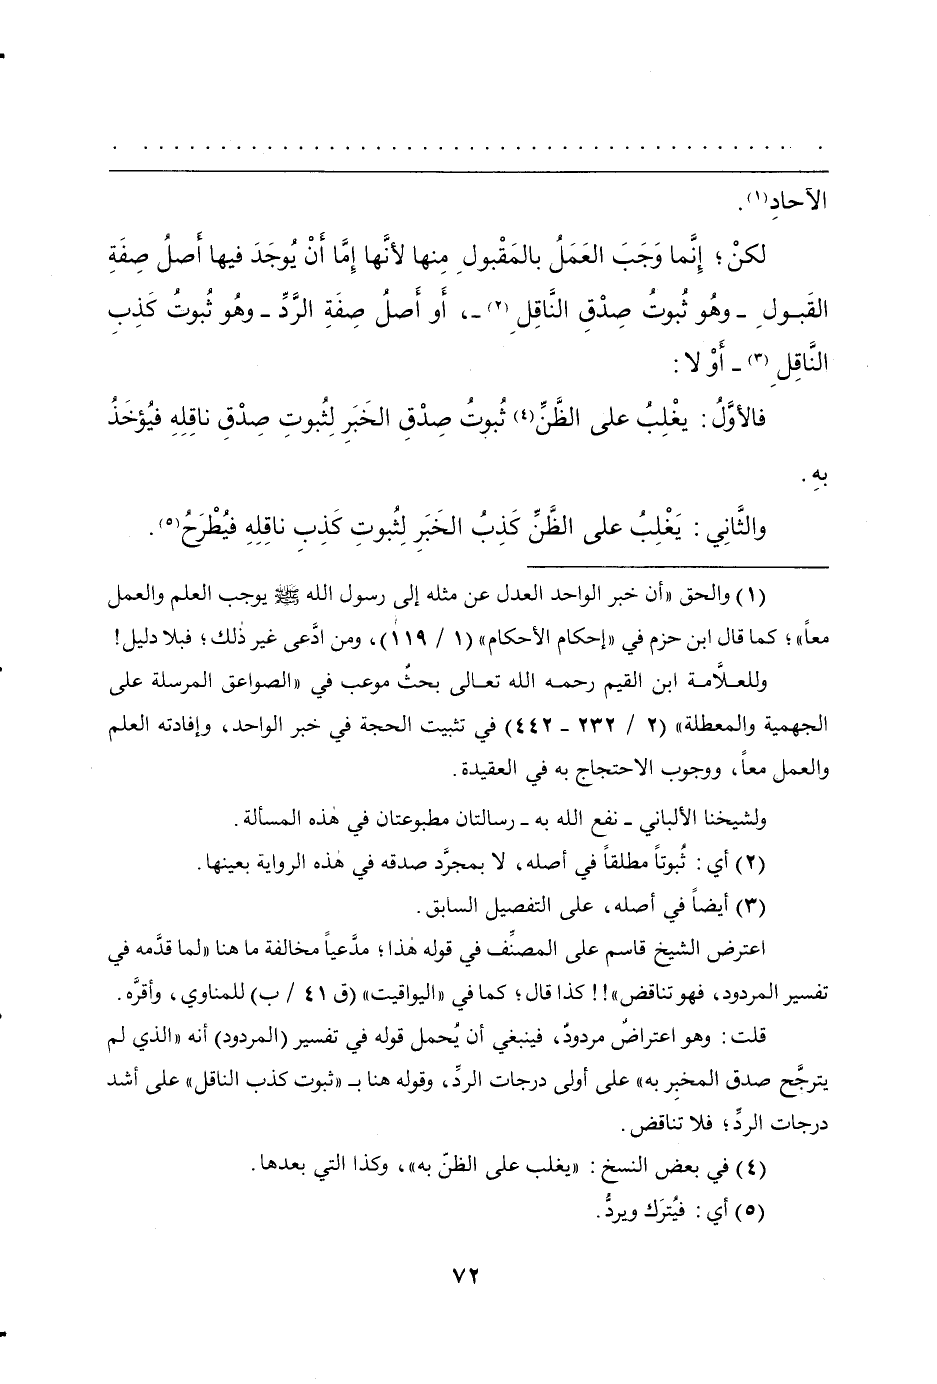 الآحادِ(١).
لكنْ؛ إِنَّما وَجَبَ العَمَلُ بالمَقْبولِ مِنها لأنَّها إِمَّا أَنْ يُوجَدَ فيها أَصلُ صِفَةِ
القَبولِ ـ وهُو ثُبوتُ صِدْقِ النَّاقِلِ(٢) ـ، أَو أَصلُ صِفَةِ الرَّدِّ ـ وهُو ثُبوتُ كَذِبِ
النَّاقِلِ(٣) ـ أَوْ لا:
فالأوَّلُ: يغْلِبُ على الظَّنِّ(٤) ثُبوتُ صِدْقِ الخَبَرِ لِثُبوتِ صِدْقِ ناقِلِهِ فيُؤخَذُ
بِهِ.
والثَّاني: يَغْلِبُ على الظَّنِّ كَذِبُ الخَبَرِ لِثُبوتِ كَذِبِ ناقِلِهِ فيُطْرَحُ(٥).
(١) والحق «أن خبر الواحد العدل عن مثله إلى رسول الله ﷺ يوجب العلم والعمل
معاً»؛ كما قال ابن حزم في «إحكام الأحكام» (١ / ١١٩)، ومن ادَّعى غير ذٰلك؛ فبلا دليل!
وللعلَّامة ابن القيم رحمه الله تعالى بحثٌ موعب في «الصواعق المرسلة على
الجهمية والمعطلة» (٢ / ٢٣٢ ـ ٤٤٢) في تثبيت الحجة في خبر الواحد، وإفادته العلم
والعمل معاً، ووجوب الاحتجاج به في العقيدة.
ولشيخنا الألباني ـ نفع الله به ـ رسالتان مطبوعتان في هٰذه المسألة.
(٢) أي: ثُبوتاً مطلقاً في أصله، لا بمجرَّد صدقه في هٰذه الرواية بعينها.
(٣) أيضاً في أصله، على التفصيل السابق.
اعترض الشيخ قاسم على المصنِّف في قوله هٰذا؛ مدَّعياً مخالفة ما هنا «لما قدَّمه في
تفسير المردود، فهو تناقض»!! كذا قال؛ كما في «اليواقيت» (ق ٤١ / ب) للمناوي، وأقرَّه.
قلت: وهو اعتراضٌ مردودٌ، فينبغي أن يُحمل قوله في تفسير (المردود) أنه «الذي لم
يترجَّح صدق المخبِر به» على أولى درجات الردِّ، وقوله هنا بـ «ثبوت كذب الناقل» على أشد
درجات الردِّ؛ فلا تناقض.
(٤) في بعض النسخ: «يغلب على الظنّ به»، وكذا التي بعدها.
(٥) أي: فيُترَك ويردُّ.
٧٢